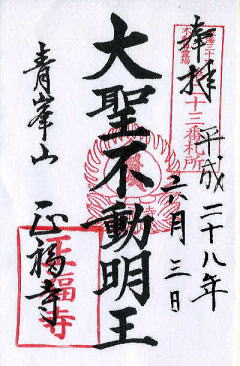 奉拝
平成二十八年
六月三日
大聖不動明王
青峯山
正福寺
十三番札所
正福寺